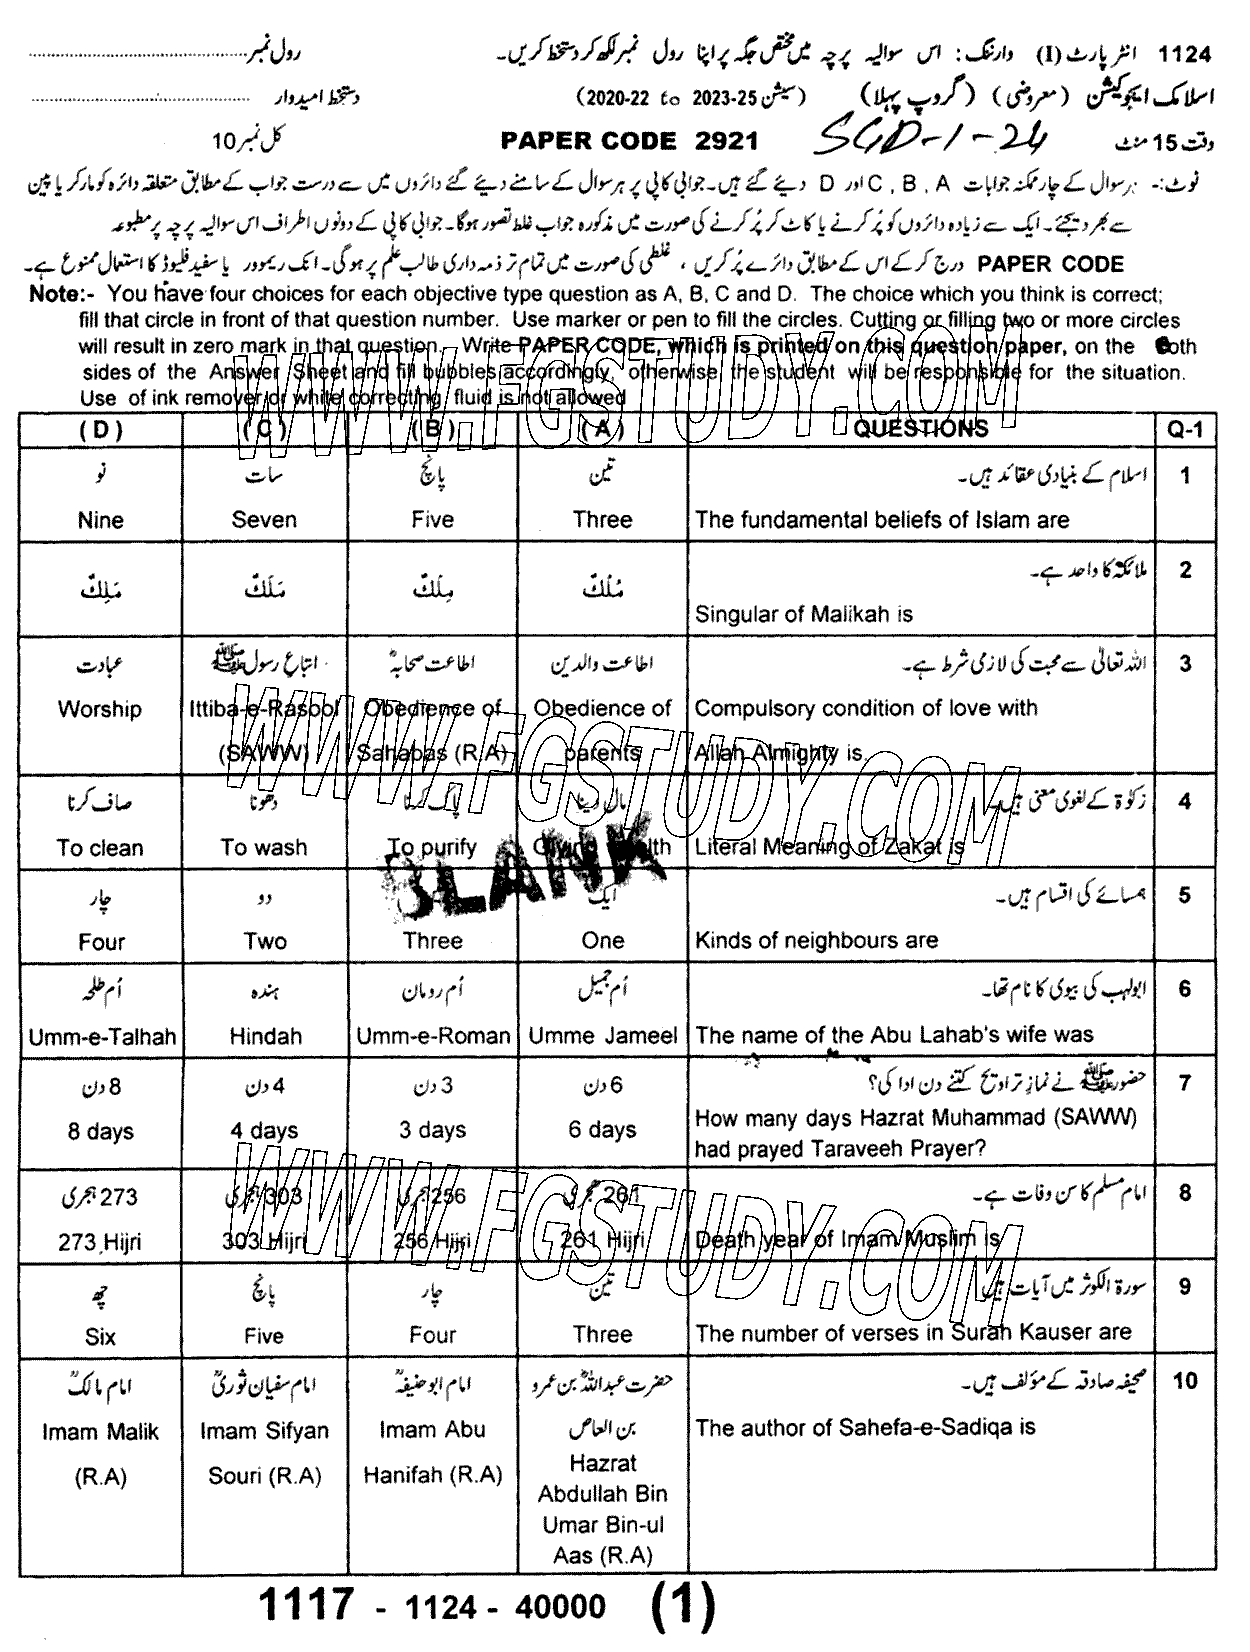 1124 انٹر پارٹ (I) وارننگ: اس سوالیہ پرچہ میں مختص جگہ پر اپنا رول نمبر لکھ کر دستخط کریں۔ رول نمبر
اسلامک ایجوکیشن (معروضی) (گروپ پہلا) (سیشن 2020-22 to 2023-25) دستخط امیدوار
وقت 15 منٹ SGD-1-24 PAPER CODE 2921 کل نمبر 10
نوٹ:- ہر سوال کے چار ممکنہ جوابات A , B , C اور D دیئے گئے ہیں۔ جوابی کاپی پر ہر سوال کے سامنے دیئے گئے دائروں میں سے درست جواب کے مطابق متعلقہ دائرہ کو مارکر یا پین
سے بھر دیجئے۔ ایک سے زیادہ دائروں کو پُر کرنے یا کاٹ کر پُر کرنے کی صورت میں مذکورہ جواب غلط تصور ہوگا۔ جوابی کاپی کے دونوں اطراف اس سوالیہ پرچہ پر مطبوعہ
PAPER CODE درج کر کے اس کے مطابق دائرے پُر کریں ، غلطی کی صورت میں تمام تر ذمہ داری طالب علم پر ہوگی۔ انک ریموور یا سفید فلیوڈ کا استعمال ممنوع ہے۔
Note:- You have four choices for each objective type question as A, B, C and D. The choice which you think is correct;
fill that circle in front of that question number. Use marker or pen to fill the circles. Cutting or filling two or more circles
will result in zero mark in that question. Write PAPER CODE, which is printed on this question paper, on the both
sides of the Answer Sheet and fill bubbles accordingly, otherwise the student will be responsible for the situation.
Use of ink remover or white correcting fluid is not allowed
(D) (C) (B) (A) QUESTIONS Q-1
نو سات پانچ تین اسلام کے بنیادی عقائد ہیں۔ 1
Nine Seven Five Three The fundamental beliefs of Islam are
مَلِکٌ مَلَکٌ مِلْکٌ مُلْکٌ ملائکۃ کا واحد ہے۔ 2
Singular of Malikah is
عبادت اتباع رسول ﷺ اطاعت صحابہؓ اطاعت والدین اللہ تعالیٰ سے محبت کی لازمی شرط ہے۔ 3
Worship Ittiba-e-Rasool Obedience of Obedience of Compulsory condition of love with
(SAWW) Sahabas (R.A) parents Allah Almighty is.
صاف کرنا دھونا پاک کرنا مال دینا زکوٰۃ کے لغوی معنی ہیں۔ 4
To clean To wash To purify Giving wealth Literal Meaning of Zakat is
BLANK
چار دو ایک ہمسائے کی اقسام ہیں۔ 5
Four Two Three One Kinds of neighbours are
اُم طلحہ ہندہ اُم رومان اُم جمیل ابولہب کی بیوی کا نام تھا۔ 6
Umm-e-Talhah Hindah Umm-e-Roman Umme Jameel The name of the Abu Lahab's wife was
8 دن 4 دن 3 دن 6 دن حضور ﷺ نے نماز تراویح کتنے دن ادا کی؟ 7
8 days 4 days 3 days 6 days How many days Hazrat Muhammad (SAWW)
had prayed Taraveeh Prayer?
273 ہجری 303 ہجری 256 ہجری 261 ہجری امام مسلم کا سن وفات ہے۔ 8
273 Hijri 303 Hijri 256 Hijri 261 Hijri Death year of Imam Muslim is
چھ پانچ چار تین سورۃ الکوثر میں آیات ہیں۔ 9
Six Five Four Three The number of verses in Surah Kauser are
امام مالکؒ امام سفیان ثوریؒ امام ابو حنیفہؒ حضرت عبداللہؓ بن عمرو صحیفہ صادقہ کے مؤلف ہیں۔ 10
Imam Malik Imam Sifyan Imam Abu بن العاص The author of Sahefa-e-Sadiqa is
(R.A) Souri (R.A) Hanifah (R.A) Hazrat
Abdullah Bin
Umar Bin-ul
Aas (R.A)
1117 - 1124 - 40000 (1)
WWW.FGSTUDY.COM
WWW.FGSTUDY.COM
WWW.FGSTUDY.COM